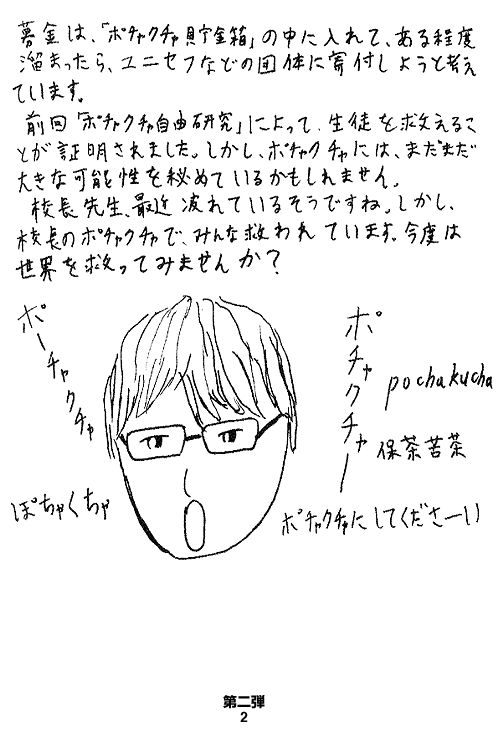 募金は、「ポチャクチャ貯金箱」の中に入れて、ある程度
溜まったら、ユニセフなどの団体に寄付しようと考え
ています。
前回「ポチャクチャ自由研究」によって、生徒を救えるこ
とが証明されました。しかし、ポチャクチャには、まだまだ
大きな可能性を秘めているかもしれません。
校長先生、最近疲れているそうですね。しかし、
校長のポチャクチャで、みんな救われています。今度は
世界を救ってみませんか?
ポーチャクチャ
ポチャクチャー
pochakucha
保茶苦茶
ぽちゃくちゃ
ポチャクチャにしてくださーい
第二弾
2